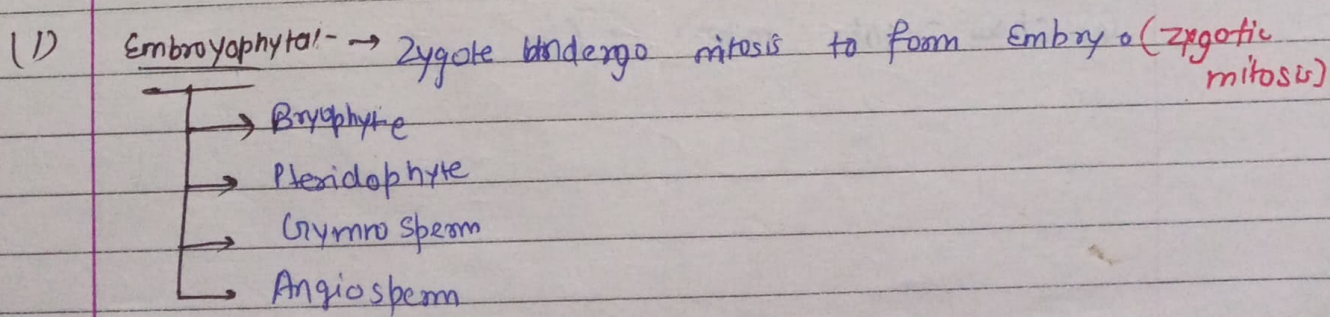 (1) Embroyophyta:- → Zygote undergo mitosis to form Embryo (Zygotic
mitosis)
→ Bryophyte
→ Pteridophyte
→ Gymno sperm
→ Angiosperm